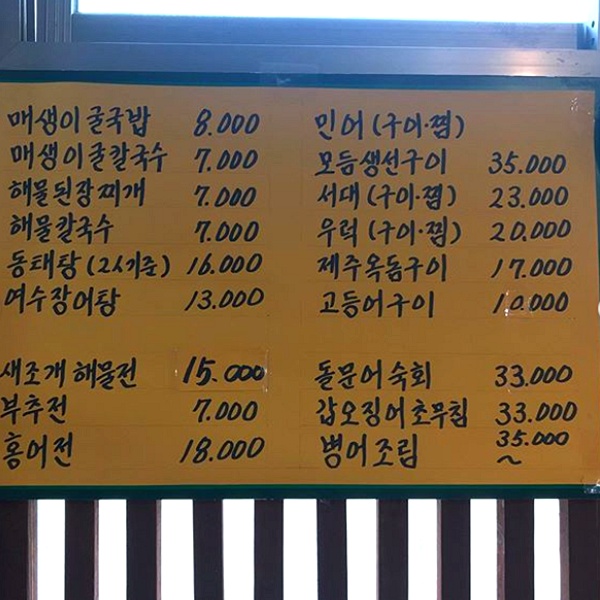 매생이굴국밥 8.000
매생이굴칼국수 7.000
해물된장찌개 7.000
해물칼국수 7.000
동태탕 (2人기준) 16.000
여수장어탕 13.000
새조개 해물전 15.000
부추전 7.000
홍어전 18.000
민어 (구이·찜)
모듬생선구이 35.000
서대 (구이·찜) 23.000
우럭 (구이·찜) 20.000
제주옥돔구이 17.000
고등어구이 10.000
돌문어숙회 33.000
갑오징어초무침 33.000
병어조림 35.000~